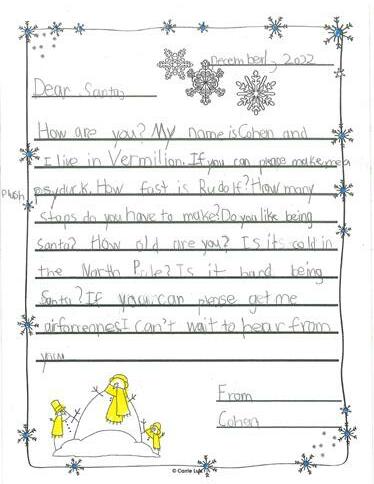 December 1, 2022
Dear Santa,
How are you? My name is Cohen and
I live in Vermilion. If you can please make me a
plush psyduck. How fast is Rudolf? How many
stops do you have to make? Do you like being
Santa? How old are you? Is its cold in
the North Pole? Is it hard being
Santa? If you can please get me
I can't wait to hear from
you
From
Cohen
© Carrie